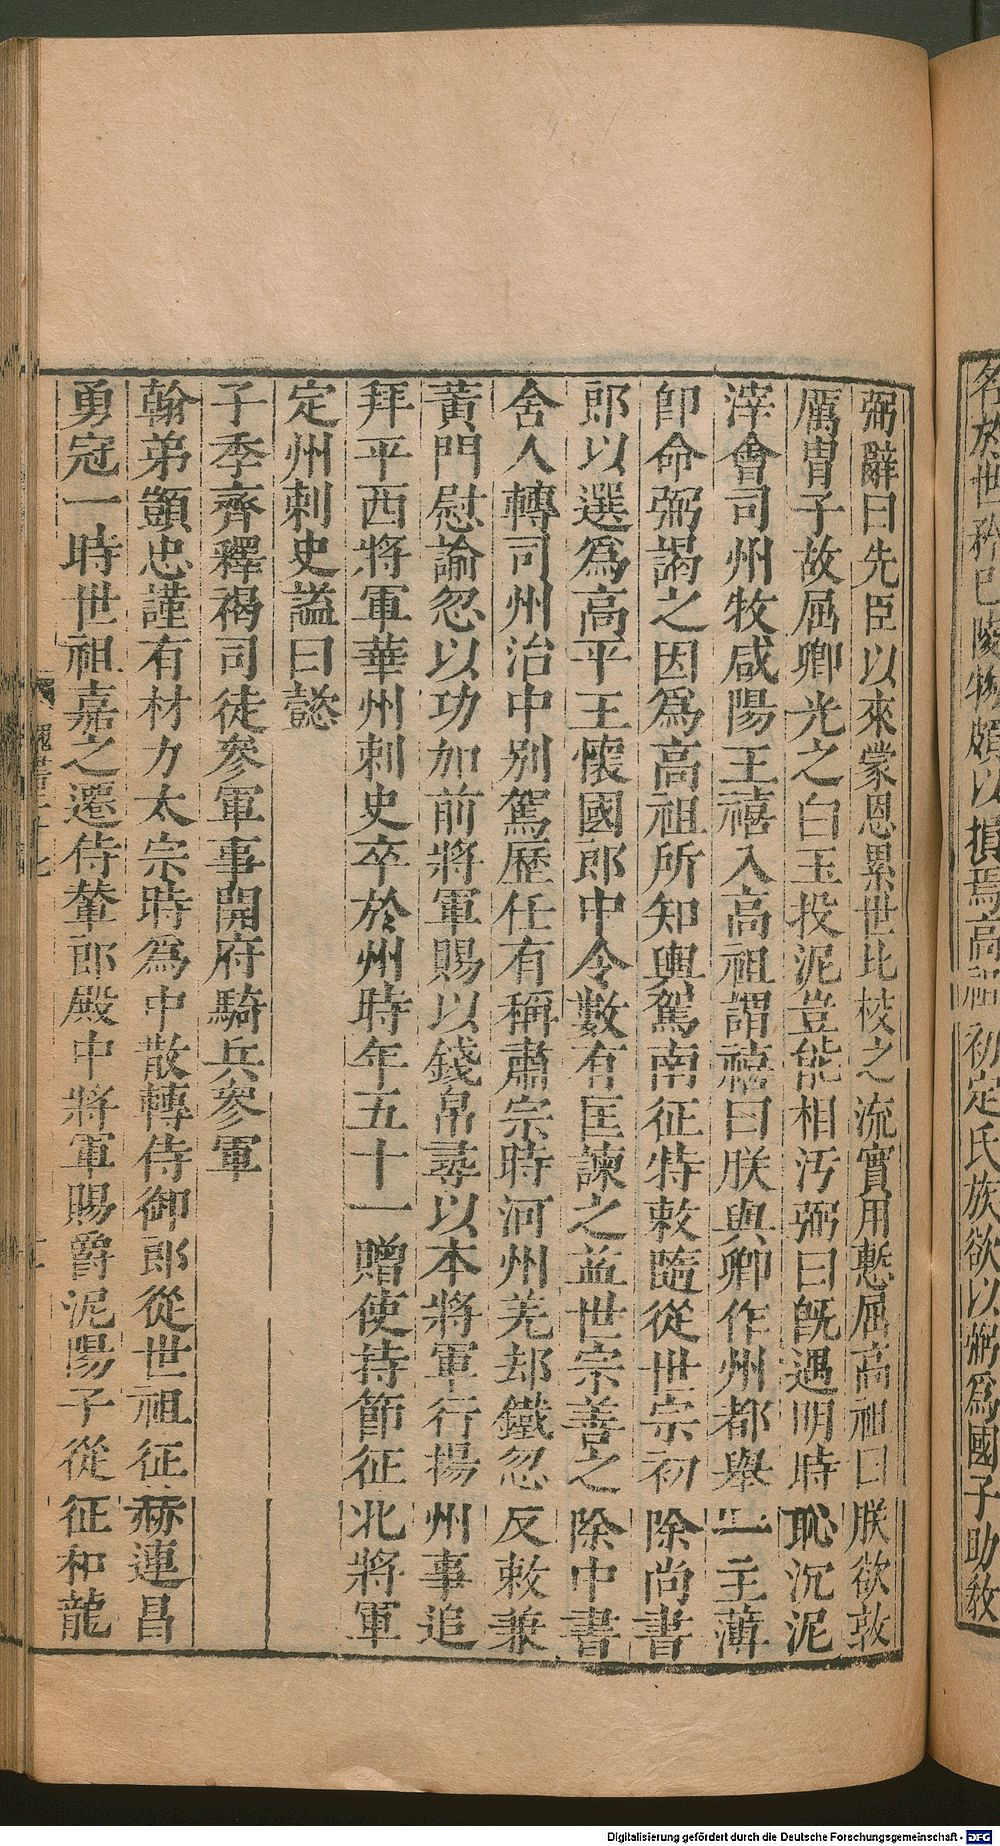 名於世矜己陵物頗以損焉高祖初定氏族欲以弼爲國子助敎
弼辭曰先臣以來蒙恩累世比校之流實用慙屈高祖曰朕欲敦
厲胄子故屈卿光之白玉投泥豈能相汚弼曰旣遇明時恥沉泥
滓會司州牧咸陽王禧入高祖謂禧曰朕與卿作州都舉一主薄
卽命弼謁之因爲高祖所知輿駕南征特敕隨從世宗初除尚書
郎以選爲高平王懷國郎中令數有匡諫之益世宗善之除中書
舍人轉司州治中別駕歷任有稱肅宗時河州羌却鐵忽反敕兼
黃門慰諭忽以功加前將軍賜以錢帛尋以本將軍行揚州事追
拜平西將軍華州刺史卒於州時年五十一贈使持節征北將軍
定州刺史諡曰懿
子季齊釋褐司徒參軍事開府騎兵參軍
翰弟顗忠謹有材力太宗時爲中散轉侍御郎從世祖征赫連昌
勇冠一時世祖嘉之遷侍輦郎殿中將軍賜爵泥陽子從征和龍
魏書
Digitalisierung gefördert durch die Deutsche Forschungsgemeinschaft - DFG